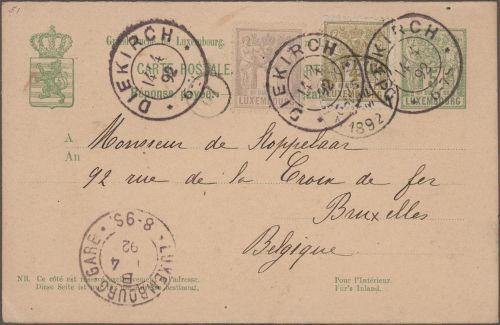 Grand-Duché de Luxembourg.
CARTE POSTALE
Réponse payée
DIEKIRCH
92
DIEKIRCH
92
DIEKIRCH
92
1892
LUXEMBOURG
LUXEMBOURG
A
An
Monsieur de Stoppelaar
92 rue de la Croix de fer
Bruxelles
Belgique
LUXEMBOURG-GARE · 8-9S.
4
92
NB. Ce côté est réservé exclusivement à l'adresse.
Diese Seite ist nur für die Adresse bestimmt.
Pour l'Intérieur.
Für's Inland.